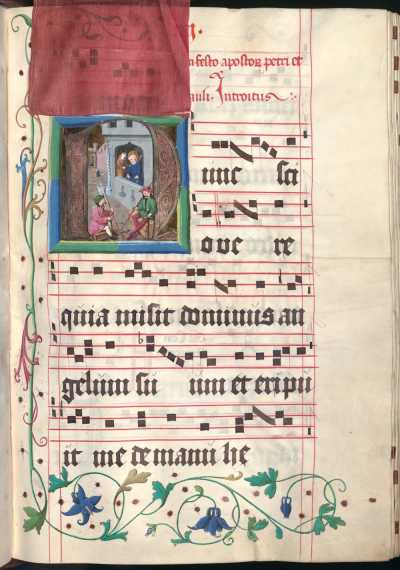 n festo apostoꝝ petri et
auli. Introitus
Nunc sci
o ve re
quia misit dominus an
gelum su um et eripu
it me de manu he